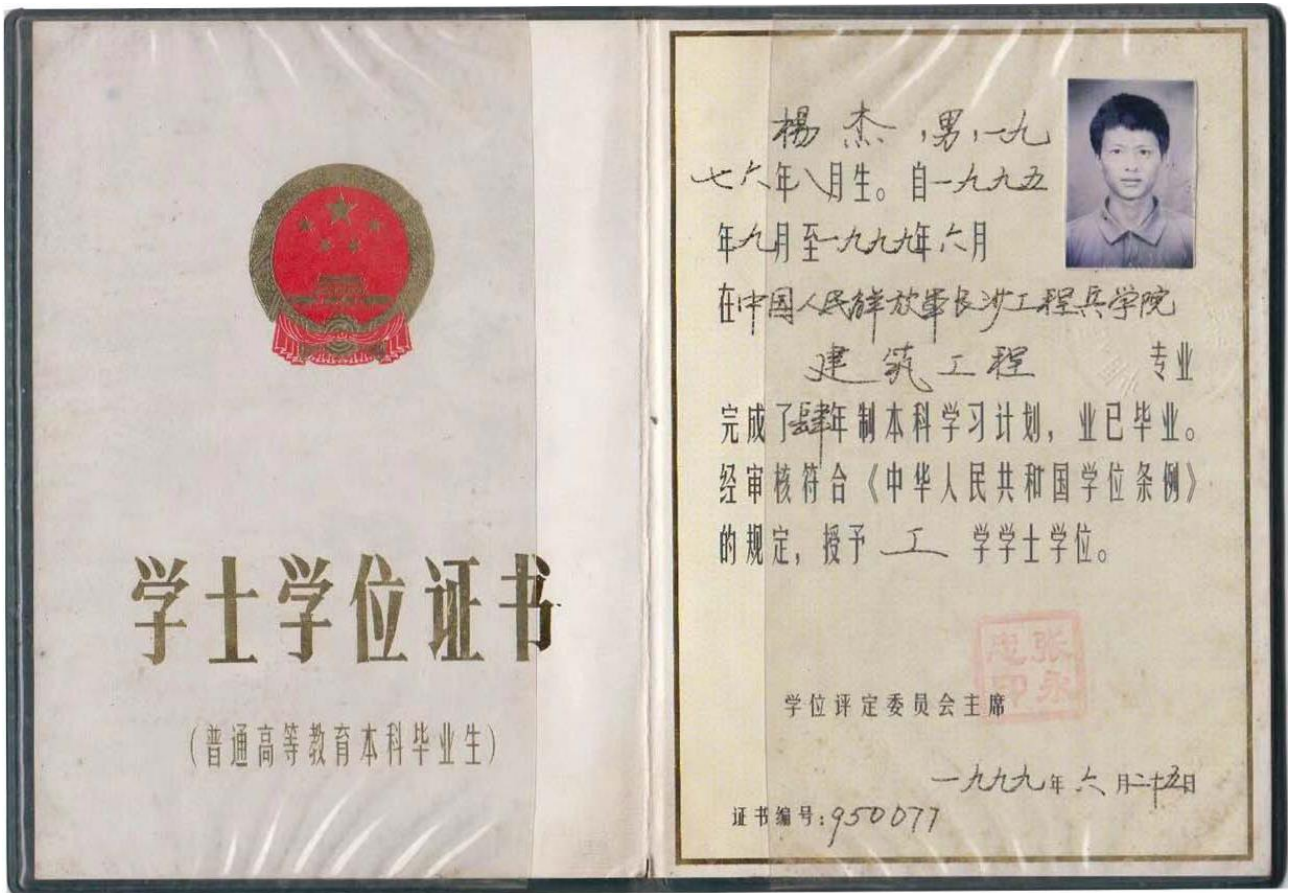 学士学位证书
(普通高等教育本科毕业生)
楊杰，男，一九
七六年八月生。自一九九五
年九月至一九九九年六月
在中国人民解放军长沙工程兵学院
建筑工程 专业
完成了肆年制本科学习计划，业已毕业。
经审核符合《中华人民共和国学位条例》
的规定，授予 工 学学士学位。
张永
印
学位评定委员会主席
一九九九年六月二十五日
证书编号：950077